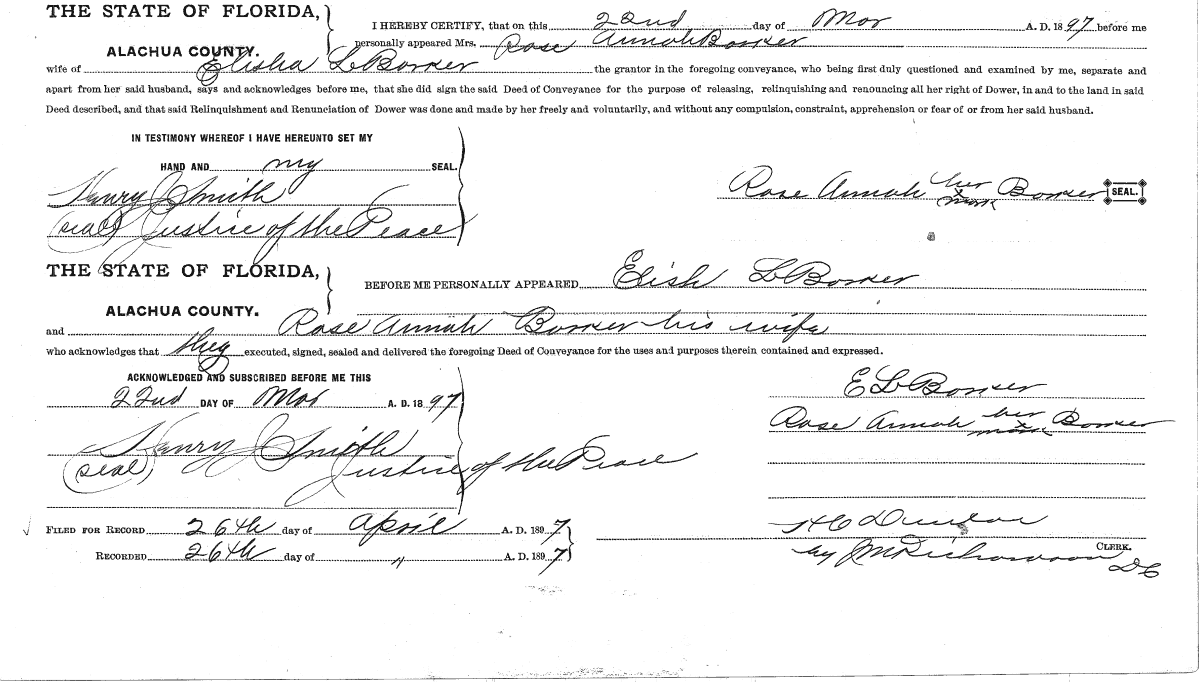 THE STATE OF FLORIDA,
ALACHUA COUNTY.
I HEREBY CERTIFY, that on this 22nd day of Mar A. D. 1897 before me
personally appeared Mrs. Rose Annah Bowser
wife of Elisha L Bowser the grantor in the foregoing conveyance, who being first duly questioned and examined by me, separate and
apart from her said husband, says and acknowledges before me, that she did sign the said Deed of Conveyance for the purpose of releasing, relinquishing and renouncing all her right of Dower, in and to the land in said
Deed described, and that said Relinquishment and Renunciation of Dower was done and made by her freely and voluntarily, and without any compulsion, constraint, apprehension or fear of or from her said husband.
IN TESTIMONY WHEREOF I HAVE HEREUNTO SET MY
HAND AND my SEAL.
Henry J Smith
(seal) Justice of the Peace
Rose Annah her x mark Bowser SEAL.
THE STATE OF FLORIDA,
ALACHUA COUNTY.
BEFORE ME PERSONALLY APPEARED Elish L Bowser
and Rose Annah Bowser his wife
who acknowledges that they executed, signed, sealed and delivered the foregoing Deed of Conveyance for the uses and purposes therein contained and expressed.
ACKNOWLEDGED AND SUBSCRIBED BEFORE ME THIS
22nd DAY OF Mar A. D. 1897
Henry J Smith
(seal) Justice of the Peace
E L Bowser
Rose Annah her x mark Bowser
FILED FOR RECORD 26th day of April A. D. 1897
RECORDED 26th day of " A. D. 1897
CLERK.
by J M Richardson DC